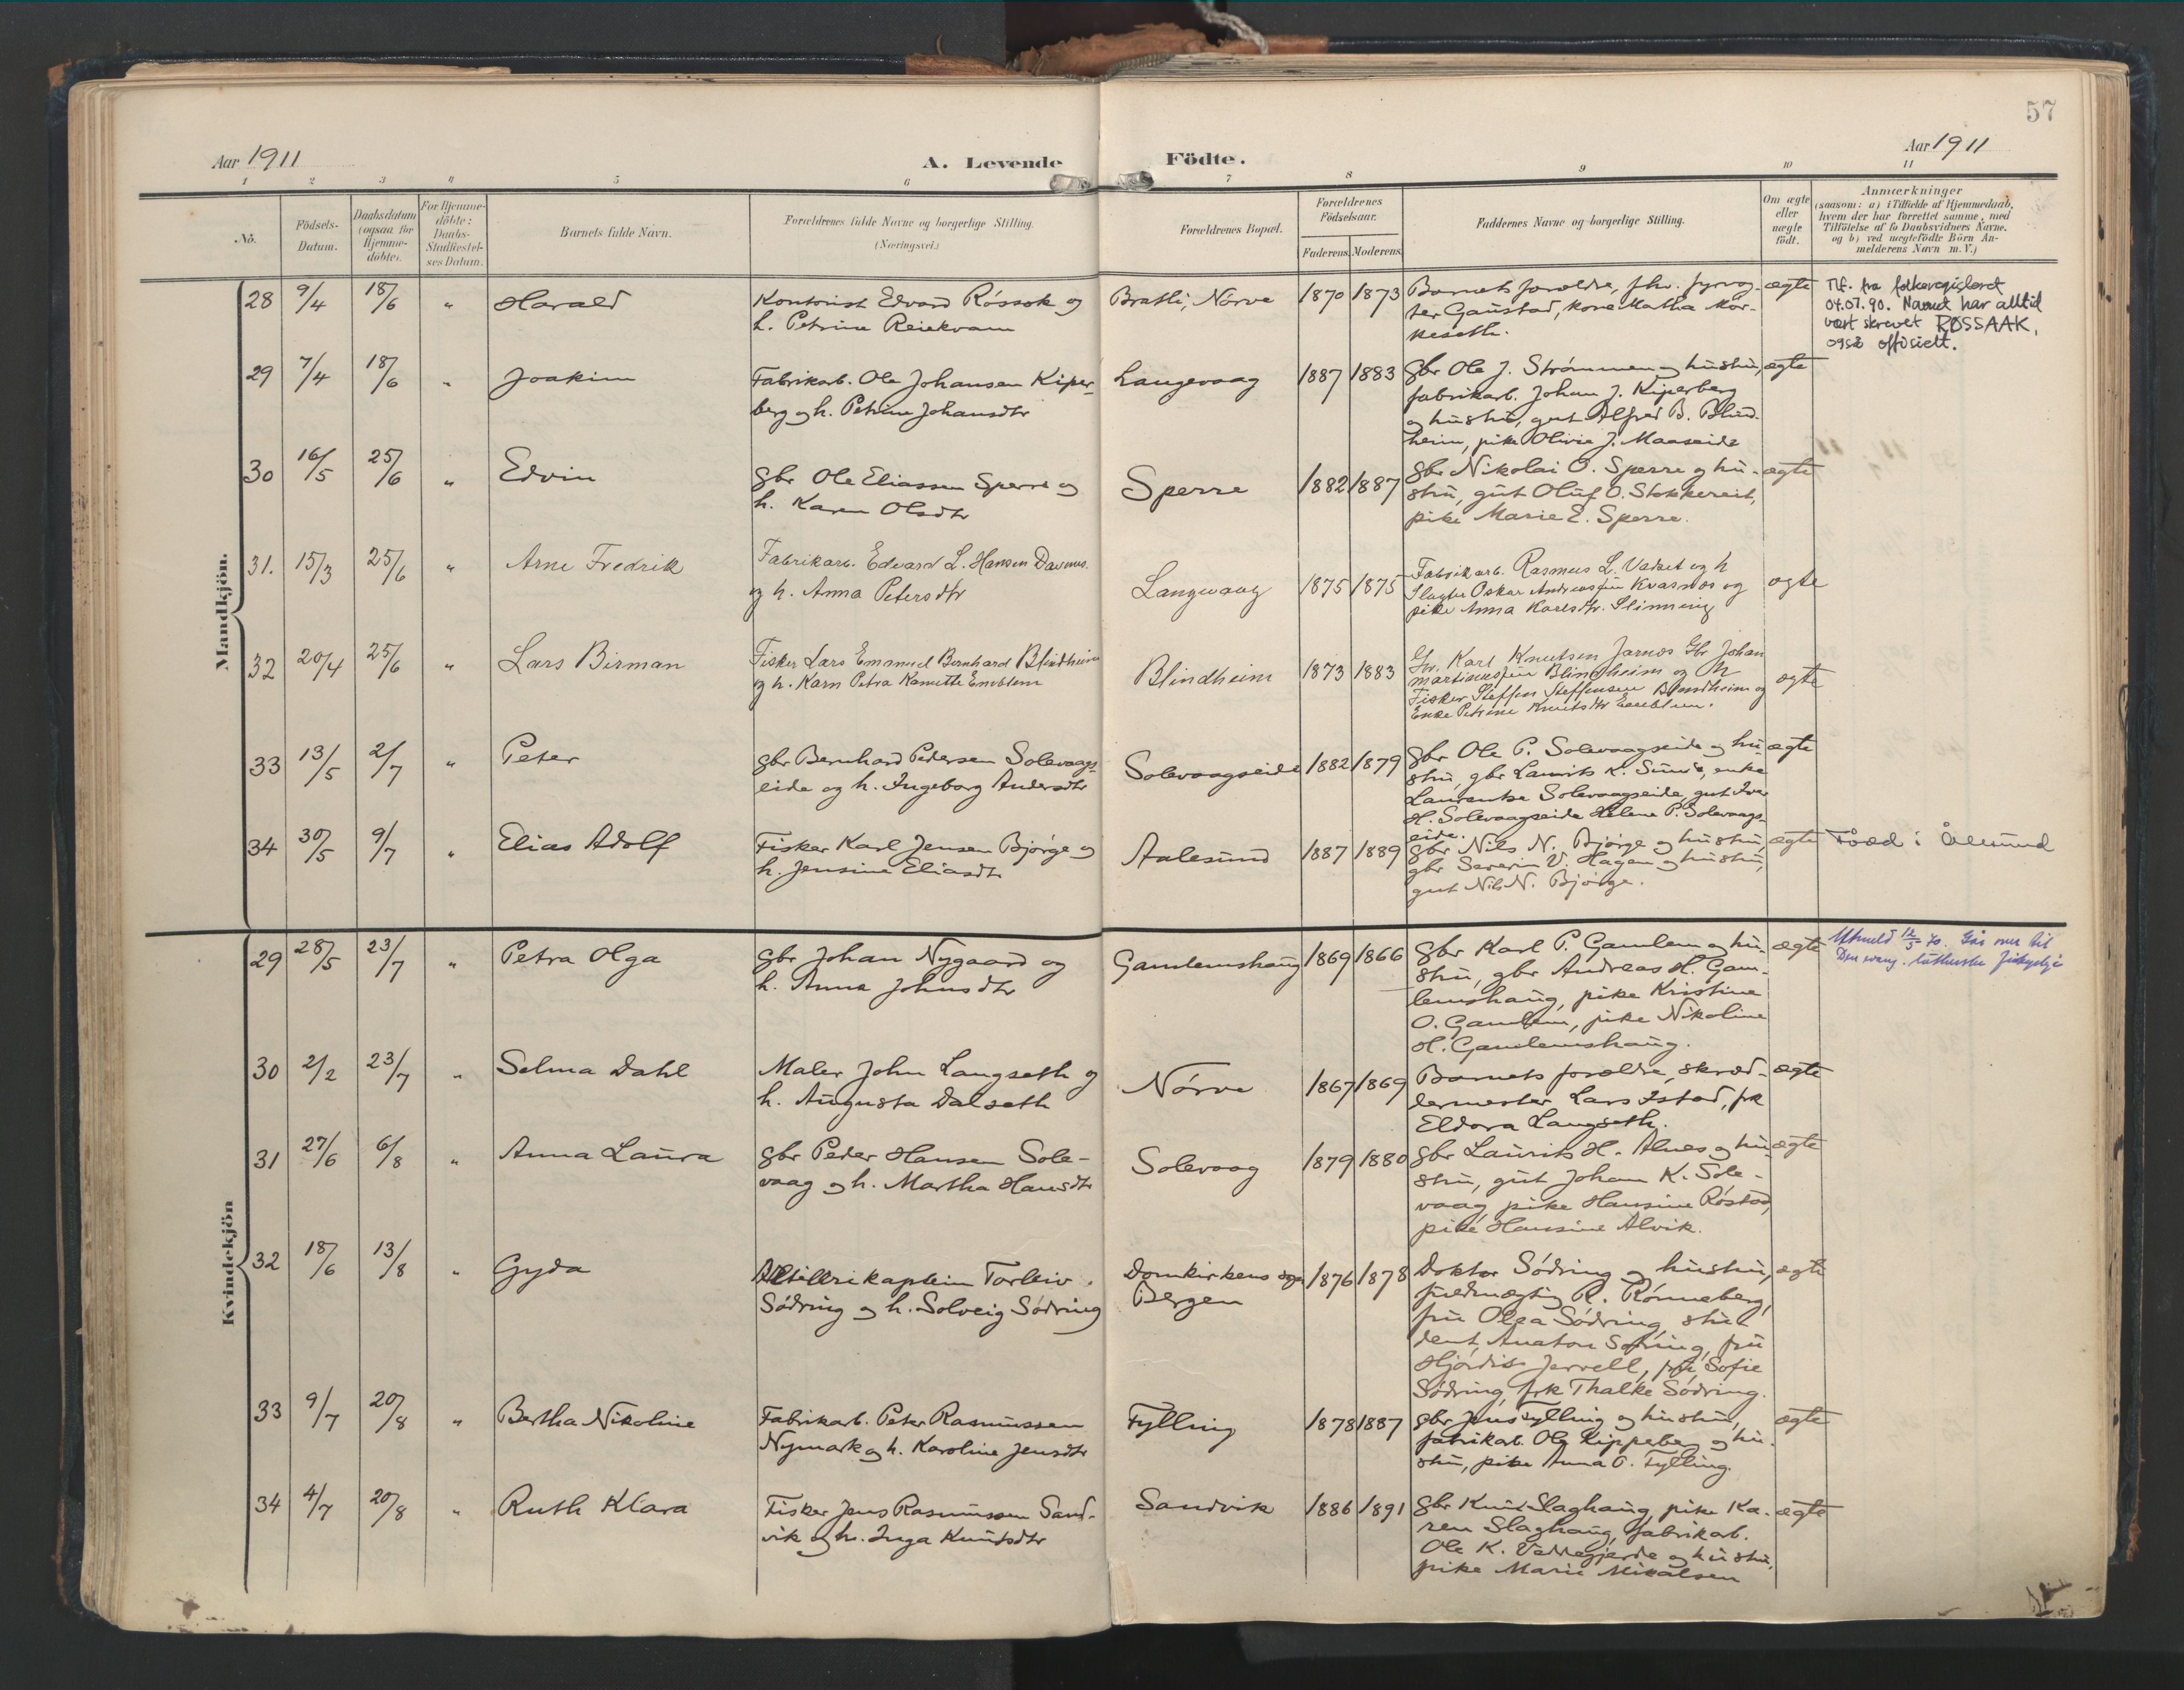 57
Aar 1911
A. Levende Födte.
Aar 1911
1 2 3 4 5 6 7 8 9 10 11
No.
Födsels-
Datum.
Daabsdatum
(ogsaa for
Hjemme-
döbte).
For Hjemme-
döbte:
Daabs-
Stadfæstel-
ses Datum.
Barnets fulde Navn.
Forældrenes fulde Navne og borgerlige Stilling.
(Næringsvei.)
Forældrenes Bopæl.
Forældrenes
Födselsaar.
Faderens. Moderens.
Faddernes Navne og borgerlige Stilling.
Om ægte
eller
uægte
födt.
Anmærkninger
(saasom: a) i Tilfælde af Hjemmedaab,
hvem der har forrettet samme, med
Tilföielse af to Daabsvidners Navne.
og b) ved uægtefödte Börn An-
melderens Navn m. V.)
Mandkjön.
28 9/4 18/6 " Harald
Kontorist Edvard Róssok og
h. Petrine Reiekvam
Bratli, Nørve 1870 1873
Barnets foreldre, fhv. fyrvog-
ter Gaustad, kone Matha Mor-
keseth.
ægte
Tlf. fra folkeregisteret
04.07.90. Navnet har alltid
vært skrevet RØSSAAK,
også offisielt.
29 7/4 18/6 " Joakim
Fabrikarb. Ole Johansen Kiper-
berg og h. Petrine Johansdtr
Langevaag 1887 1883
gbr Ole J. Strømmen og hustru,
fabrikarb. Johan J. Kiperberg
og hustru, gut Alfred B. Blind-
heim, pike Olivie J. Maaseide
ægte
30 16/5 25/6 " Edvin
gbr Ole Eliassen Sperre og
h. Karen Olsdtr
Sperre 1882 1887
gbr Nikolai O. Sperre og hu-
stru, gut Oluf O. Stokkereit,
pike Marie E. Sperre.
ægte
31. 15/3 25/6 " Arne Fredrik
Fabrikarb. Edvard L. Hansen
og h. Anna Petersdtr
Langevaag 1875 1875
Fabrikarb. Rasmus L. Vadset og h
Slagter Oskar Andreassen Kvasnes og
pike Anna Karlsdtr. Slinning
ægte
32 20/4 25/6 " Lars Birman
Fisker Lars Emanuel Bernhard Blindheim
og h. Karn Petra Kanutte Emblem
Blindheim 1873 1883
Gbr. Karl Knutsen Jarnes Gbr Johan
Martinussen Blindheim og h
Fisker Steffen Steffensen Blindheim og
Enke Petrine Knutsdtr Emblem.
ægte
33 13/5 2/7 " Peter
gbr Bernhard Pedersen Solevaags-
eide og h. Ingeborg Andersdtr
Solevaagseide 1882 1879
gbr Ole P. Solevaagseide og hu-
stru, gbr Laurits K. Sunde, enke
Laurentse Solevaagseide, gut Iver
H. Solevaagseide Helene P. Solevaags-
eide.
ægte
34 30/5 9/7 " Elias Adolf
Fisker Karl Jensen Bjørge og
h. Jensine Eliasdtr
Aalesund 1887 1889
gbr Nils N. Bjørge og hustru,
gbr Severin V. Hagen og hustru,
gut Nils N. Bjørge.
ægte
Fðed i Ålesund
Kvindekjön
29 28/5 23/7 " Petra Olga
gbr Johan Nygaard og
h. Anna Johnsdtr
Gamlemshaug 1869 1866
gbr Karl P. Gamlem og hu-
stru, gbr Andreas H. Gam-
lemshaug, pike Kristine
O. Gamlem, pike Nikoline
H. Gamlemshaug.
ægte
Utmeld 12/5 70. Går over til
Den evang. lutherske frikyrkje
30 2/2 23/7 " Selma Dahl
Maler John Langseth og
h. Augusta Dalseth
Nørve 1867 1869
Barnets foreldre, skræd-
dermester Lars Istad, frk
Eldora Langseth.
ægte
31 27/6 6/8 " Anna Laura
gbr Peder Hansen Sole-
vaag og h. Martha Hansdtr
Solevaag 1879 1880
gbr Laurits H. Alnes og hu-
stru, gut Johan K. Sole-
vaag, pike Hansine Røstad,
pike Hansine Alvik.
ægte
32 18/6 13/8 " Gyda
Artillerikaptein Torleiv
Södring og h. Solveig Södring
Domkirkens sogn
Bergen
1876 1878
Doktor Södring og hustru,
fuldmægtig R. Rönneberg,
fru Olga Södring, stu-
dent Anaton Södring, fru
Hjördis Jervell, frk Sofie
Södring, frk Thalke Södring.
ægte
33 9/7 20/8 " Bertha Nikoline
Fabrikarb. Peter Rasmussen
Nymark og h. Karoline Jensdtr
Fylling 1878 1887
gbr Jens Fylling og hustru,
fabrikarb. Ole Kipperberg og hu-
stru, pike Anna O. Fylling.
ægte
34 4/7 20/8 " Ruth Klara
Fisker Jens Rasmussen Sand-
vik og h. Inga Knutsdtr
Sandvik 1886 1891
gbr Knut Slaghaug, pike Ka-
ren Slaghaug, fabrikarb.
Ole K. Veddegjerde og hustru,
pike Marie Mikalsen
ægte